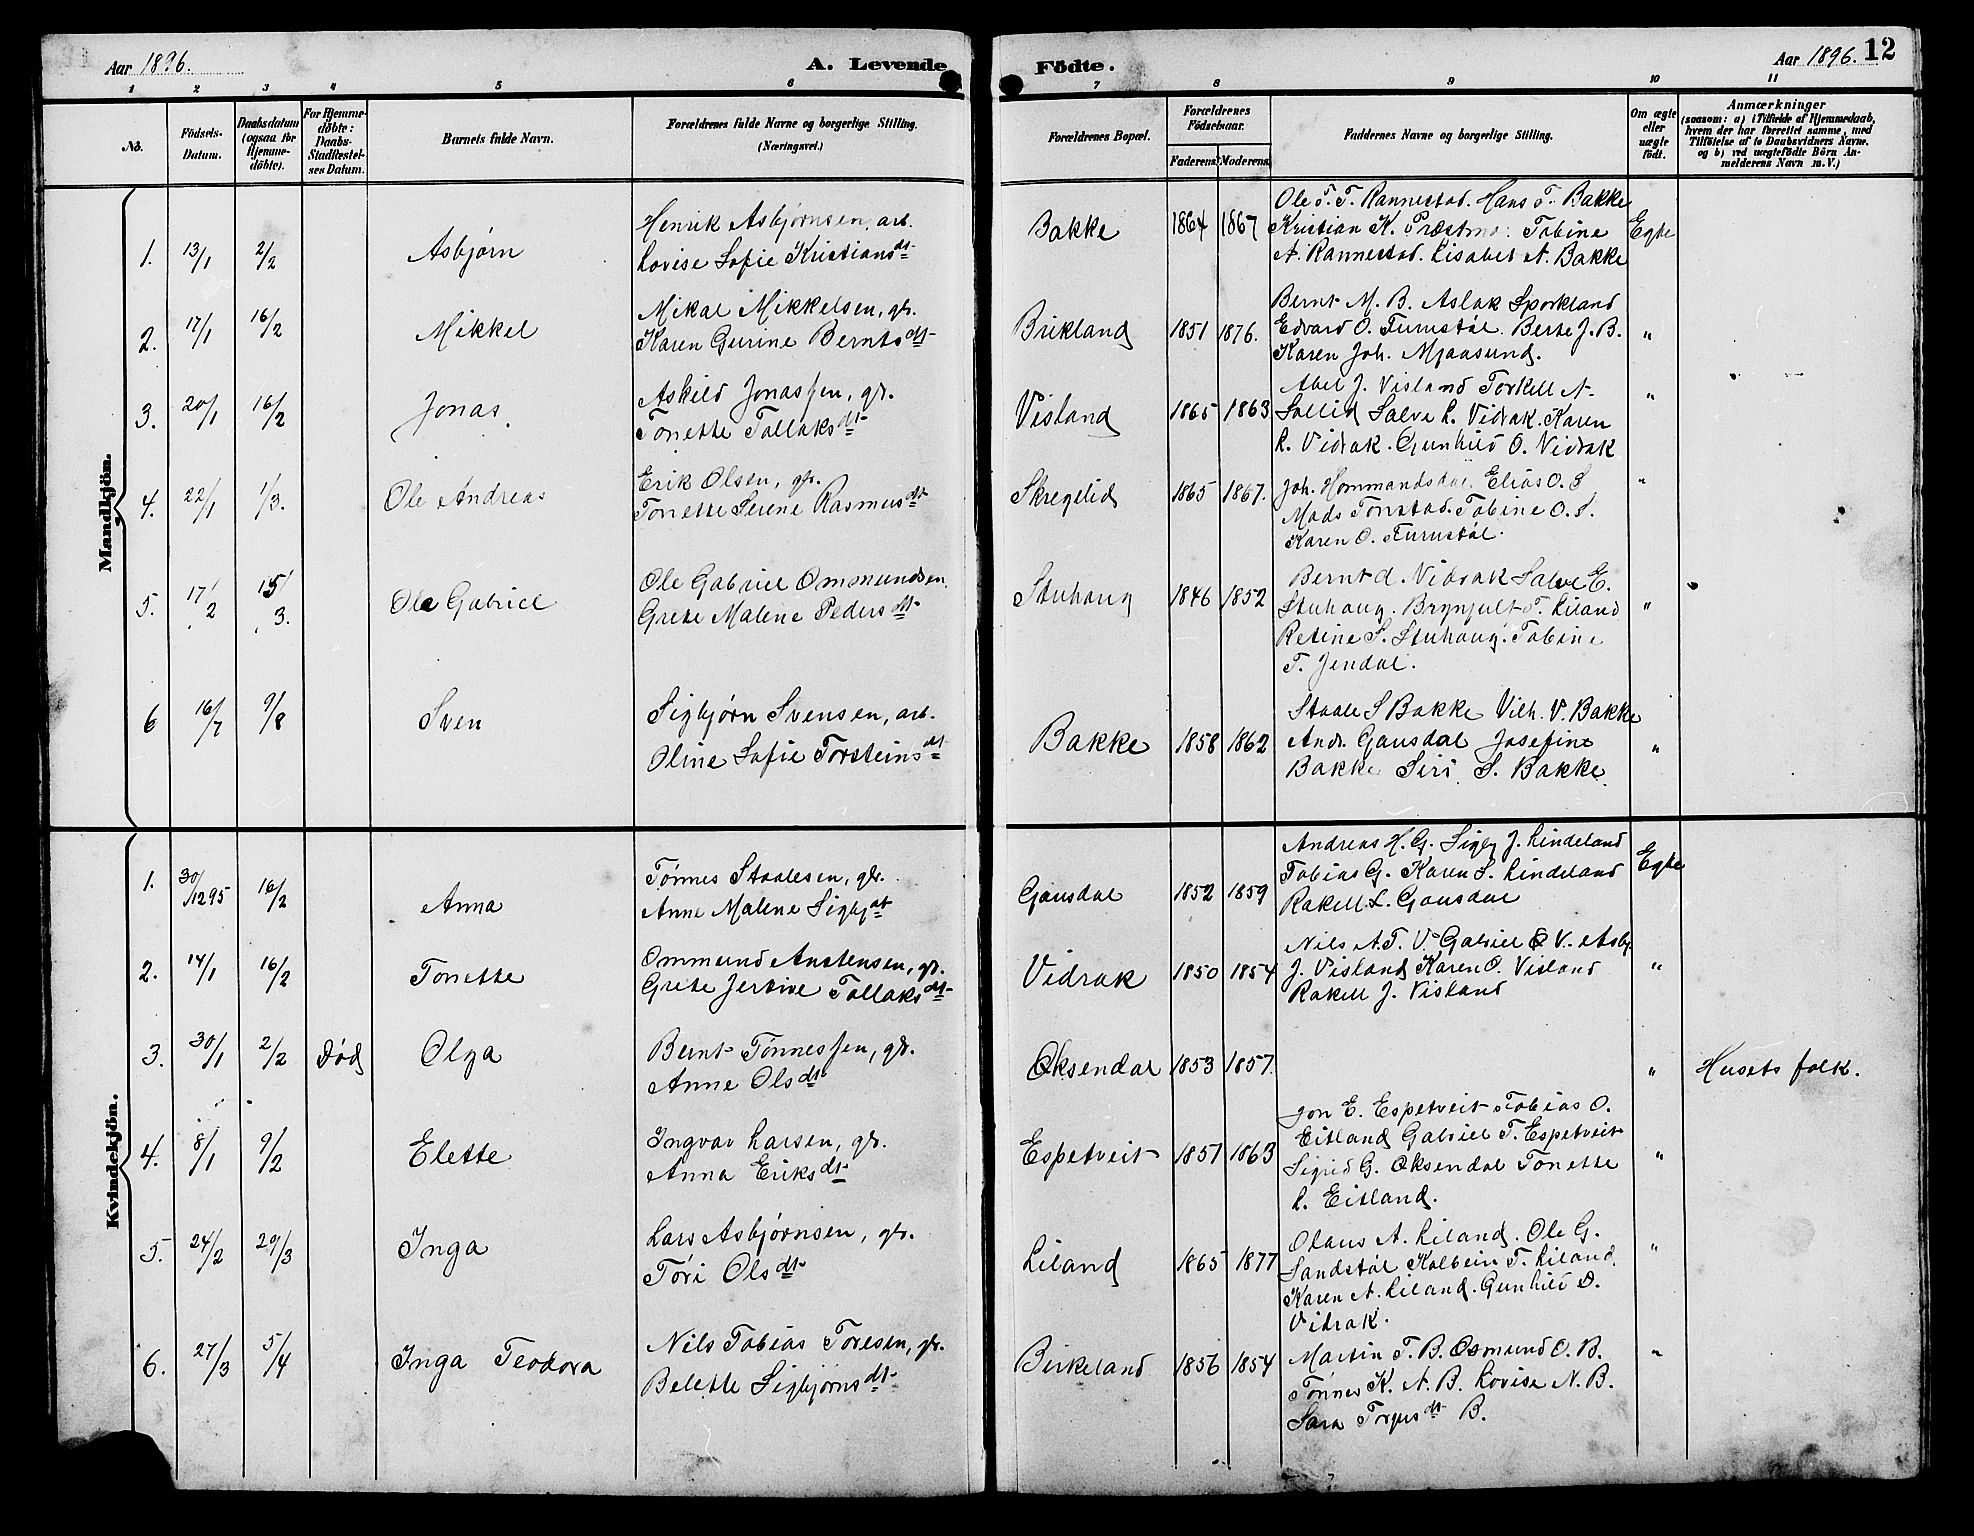 Aar 1896.
A. Levende Födte.
Aar 1896. 12
1 2 3 4 5 6 7 8 9 10 11
No.
Födsels-
Datum.
Daabsdatum
(ogsaa for
Hjemme-
döbte).
For Hjemme-
döbte:
Daabs-
Stadfæstel-
ses Datum.
Barnets fulde Navn.
Forældrenes fulde Navne og borgerlige Stilling.
(Næringsvei.)
Forældrenes Bopæl.
Forældrenes
Födselsaar.
Faderens. Moderens.
Faddernes Navne og borgerlige Stilling.
Om ægte
eller
uægte
födt.
Anmærkninger
(saasom: a) i Tilfælde af Hjemmedaab,
hvem der har forrettet samme, med
Tilföielse af to Daabsvidners Navne.
og b) ved uægtefödte Börn An-
melderens Navn m. V.)
Mandkjön.
1. 13/1 2/2 Asbjørn
Henrik Asbjørnsen, arb.
Lovise Sofie Kristiansdt.
Bakke 1864 1867
Ole T. T. Rannestad. Hans T. Bakke
Kristian K. Præstmo. Tobine
A. Rannestad. Lisabet A. Bakke
Egte
2. 17/1 16/2 Mikkel
Mikal Mikkelsen, gr.
Karen Gurine Berntsdt.
Brikland 1851 1876.
Bernt M. B. Aslak Sporkland
Edvard O. Furustøl. Berte J. B.
Karen Joh. Mjaasund.
"
3. 20/1 16/2 Jonas
Askild Jonassen, gr.
Tonette Tollaksdt.
Visland 1865 1863
Abel J. Visland Torkell N.
Sollid Salve L. Vidrak. Karen
L. Vidrak. Gunhild O. Vidrak
"
4. 22/1 1/3. Ole Andreas
Erik Olsen, gr.
Tonette Serene Rasmusdt.
Skregelid 1865 1867.
Joh. Hommandsdal, Elias O. S
Mads Tonstad. Tobine O. S.
Karen O. Furustøl.
"
5. 17/2 15/3. Ole Gabriel
Ole Gabriel Ommundsen.
Grete Malene Pedersdt.
Stuhaug 1846 1852
Bernt d. Vidrak Salve E.
Stuhaug. Brynjult T. Liland
Retine S. Stuhaug. Tobine
T. Jendal.
"
6 16/7 9/8 Sven
Sigbjørn Svensen, arb.
Oline Sofie Torsteinsdt.
Bakke 1858 1862
Staale S Bakke Vilh. V. Bakke
Andr. Gausdal Josefine
Bakke Siri S. Bakke.
"
Kvindekjön.
1. 30/12 95 16/2 Anna
Tønnes Staalesen, gr.
Anne Malene Sigbjdt.
Gausdal 1852 1859
Andreas H. G. Sigbj J. Lindeland
Tobias G. Karen S. Lindeland
Rakell L. Gausdal
Egte
2. 14/1 16/2 Tonette
Ommund Austensen, gr.
Grete Jertine Tollaksdt.
Vidrak 1850 1854
Nils A. T. V. Gabriel O V. Asbj.
J. Visland Karen O. Visland
Rakell J. Visland
"
3. 30/1 2/2 Død Olga
Bernt Tønnessen, gr.
Anne Olsdt.
Øksendal 1853 1857.
" Husets folk.
4. 8/1 9/2 Elette
Ingvar Larsen, gr.
Anna Eriksdt.
Espetveit 1857 1863
Jon E. Espetveit Tobias O.
Eitland Gabriel T. Espetveit
Sigrid G. Øksendal Tonette
L. Eitland.
"
5. 24/2 29/3 Inga
Lars Asbjørnsen, gr.
Tøri Olsdt.
Liland 1865 1877
Olaus A. Liland. Ole G.
Sandstøl Kolbein T. Liland.
Karen A. Liland. Gunhild O.
Vidrak.
"
6. 27/3 5/4 Inga Teodora
Nils Tobias Toresen, gr.
Belette Sigbjørnsdt.
Birkeland 1856 1854
Martin T. B. Osmund O. B.
Tønnes K. A. B. Lovise N. B.
Sara Torjusdt. B.
"